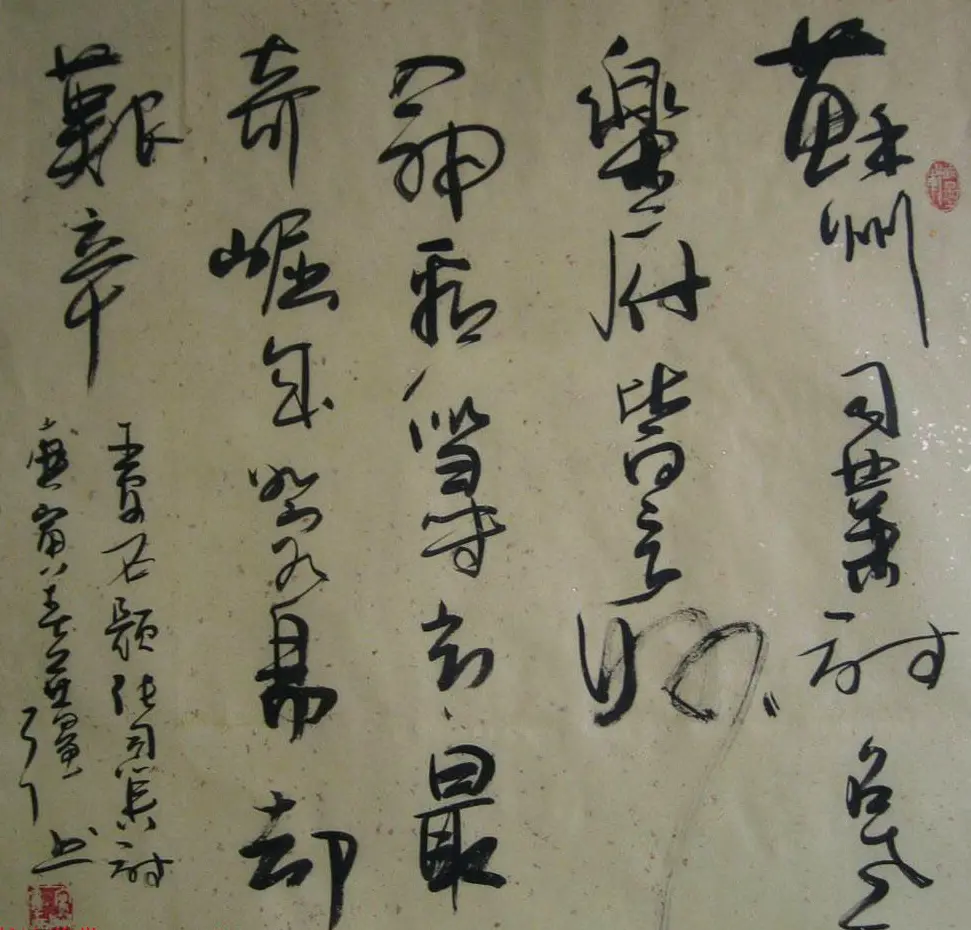 蘇州司業詩名老
樂府皆言妙
入神看似尋常最
奇崛成如容易却
艱辛
王安石題張司業詩
庚寅春墨